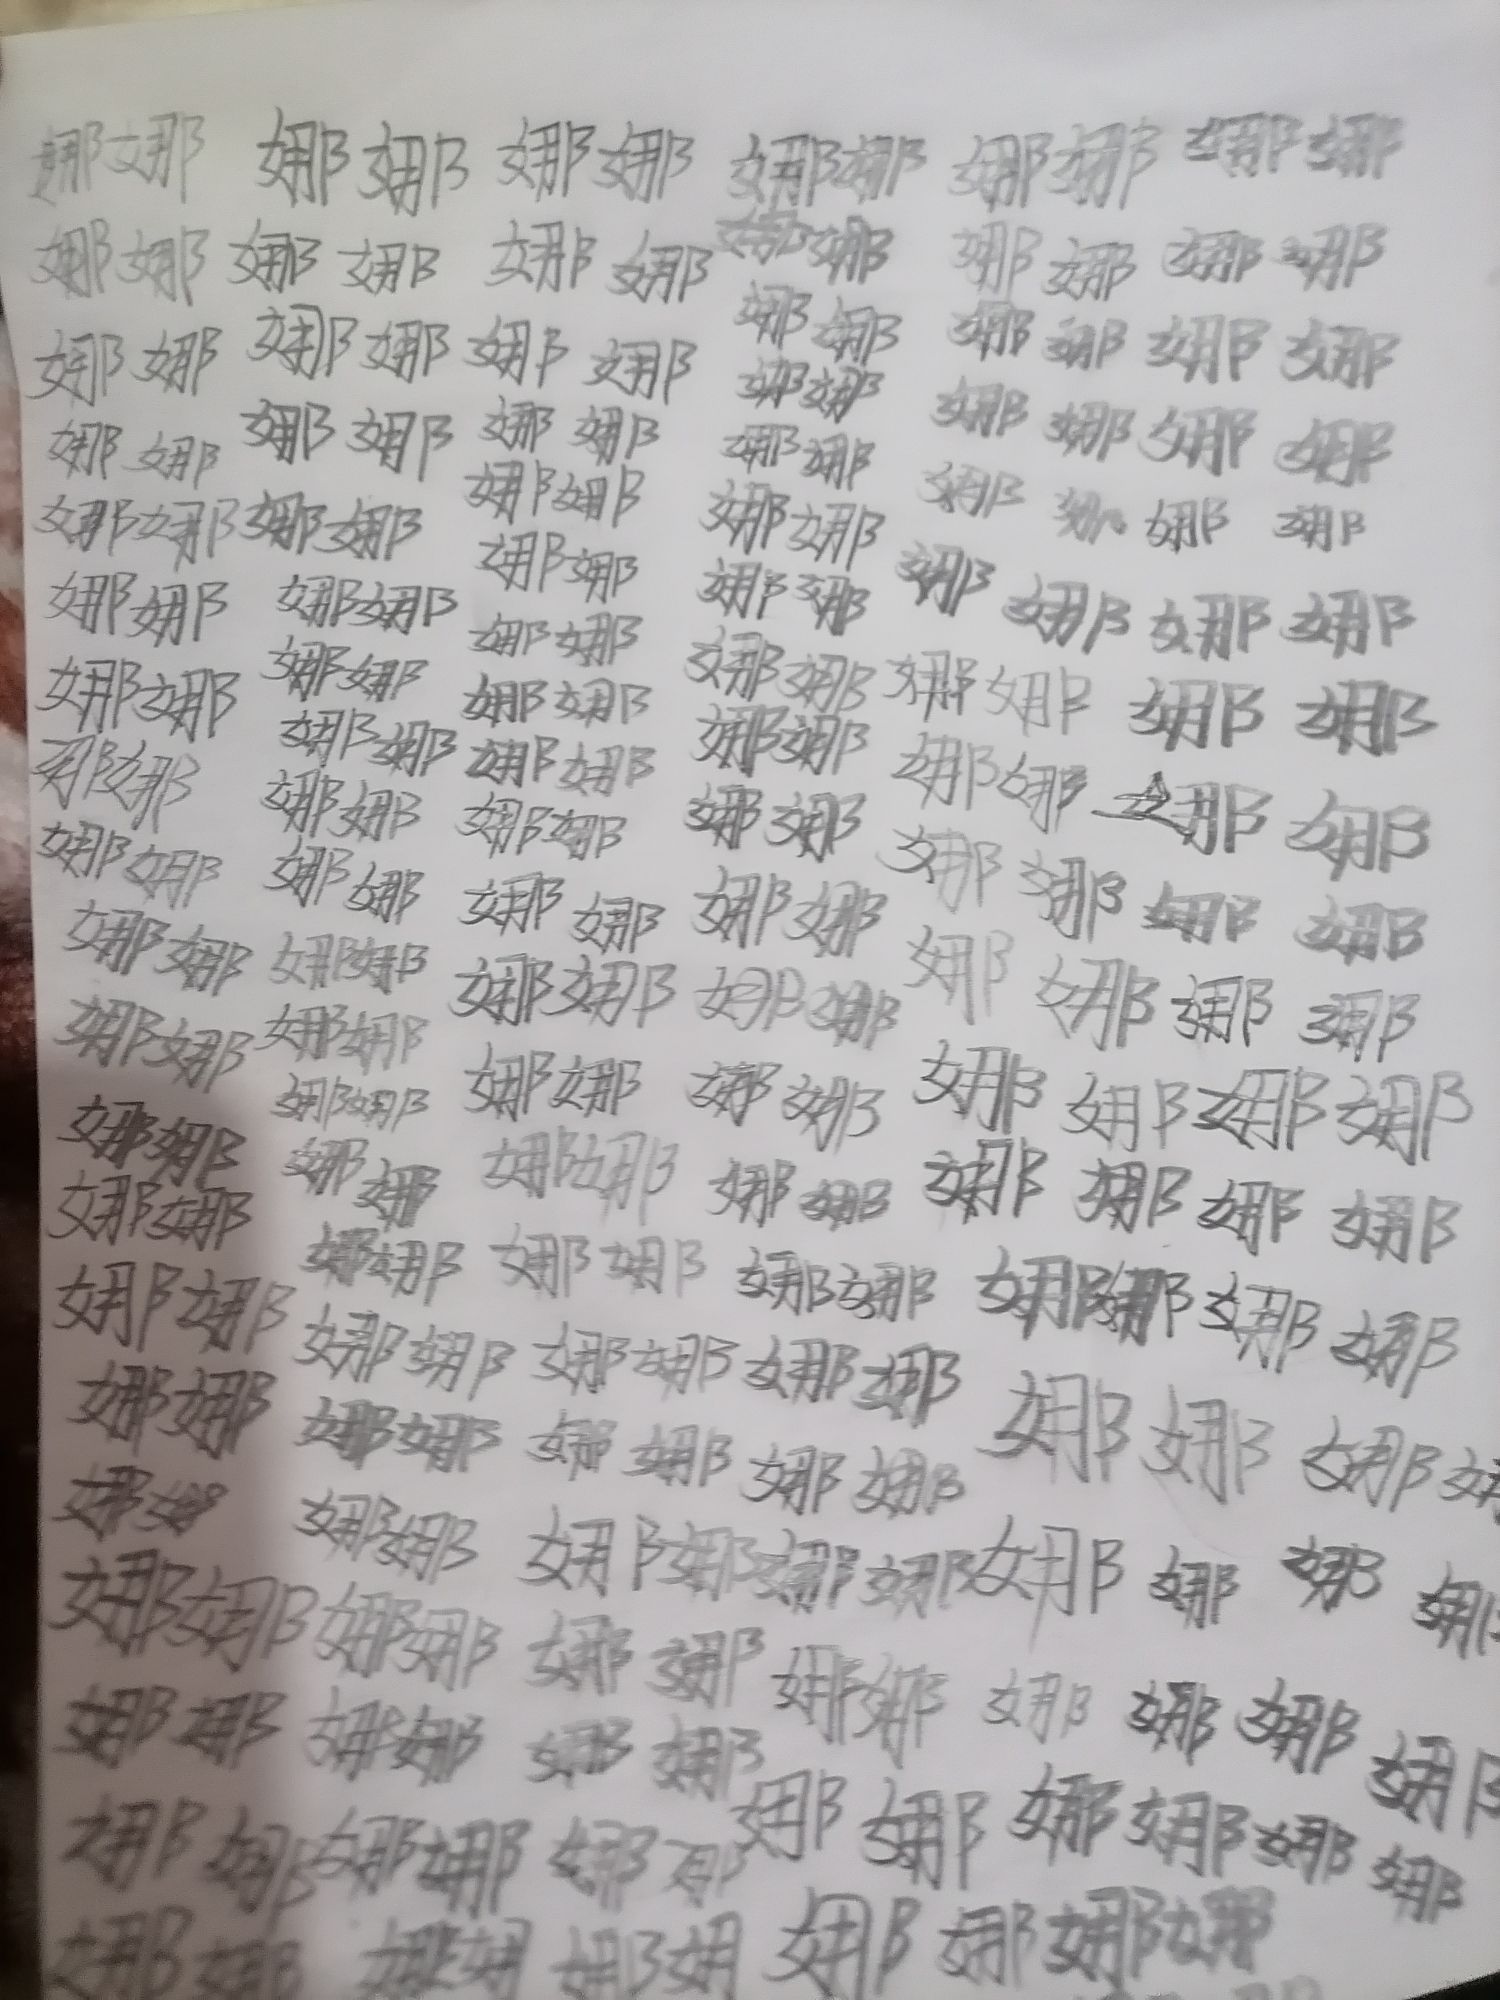 娜娜 娜娜 娜娜 娜娜 娜娜 娜娜
娜娜 娜娜 娜娜 娜娜 娜娜 娜娜
娜娜 娜娜 娜娜 娜娜 娜娜 娜娜
娜娜 娜娜 娜娜 娜娜 娜娜 娜娜
娜娜 娜娜 娜娜 娜娜 娜 娜娜
娜娜 娜娜 娜娜 娜娜 娜娜 娜娜
娜娜 娜娜 娜娜 娜娜 娜娜 娜娜
娜娜 娜娜 娜娜 娜娜 娜娜 娜娜
娜娜 娜娜 娜娜 娜娜 娜娜 娜娜
娜娜 娜娜 娜娜 娜娜 娜娜 娜娜
娜娜 娜娜 娜娜 娜娜 娜娜 娜娜
娜娜 娜娜 娜娜 娜娜 娜娜 娜娜
娜娜 娜娜 娜娜 娜娜 娜娜 娜娜
娜娜 娜娜 娜娜 娜娜 娜娜 娜
娜娜 娜娜 娜娜 娜娜 娜娜 娜娜
娜 娜娜 娜娜 娜娜 娜娜 娜娜
娜娜 娜娜 娜娜 娜娜 娜娜 娜娜
娜娜 娜娜 娜娜 娜娜 娜娜 娜
娜娜 娜娜 娜 娜娜 娜娜
娜娜 娜娜 娜娜 娜娜 娜娜